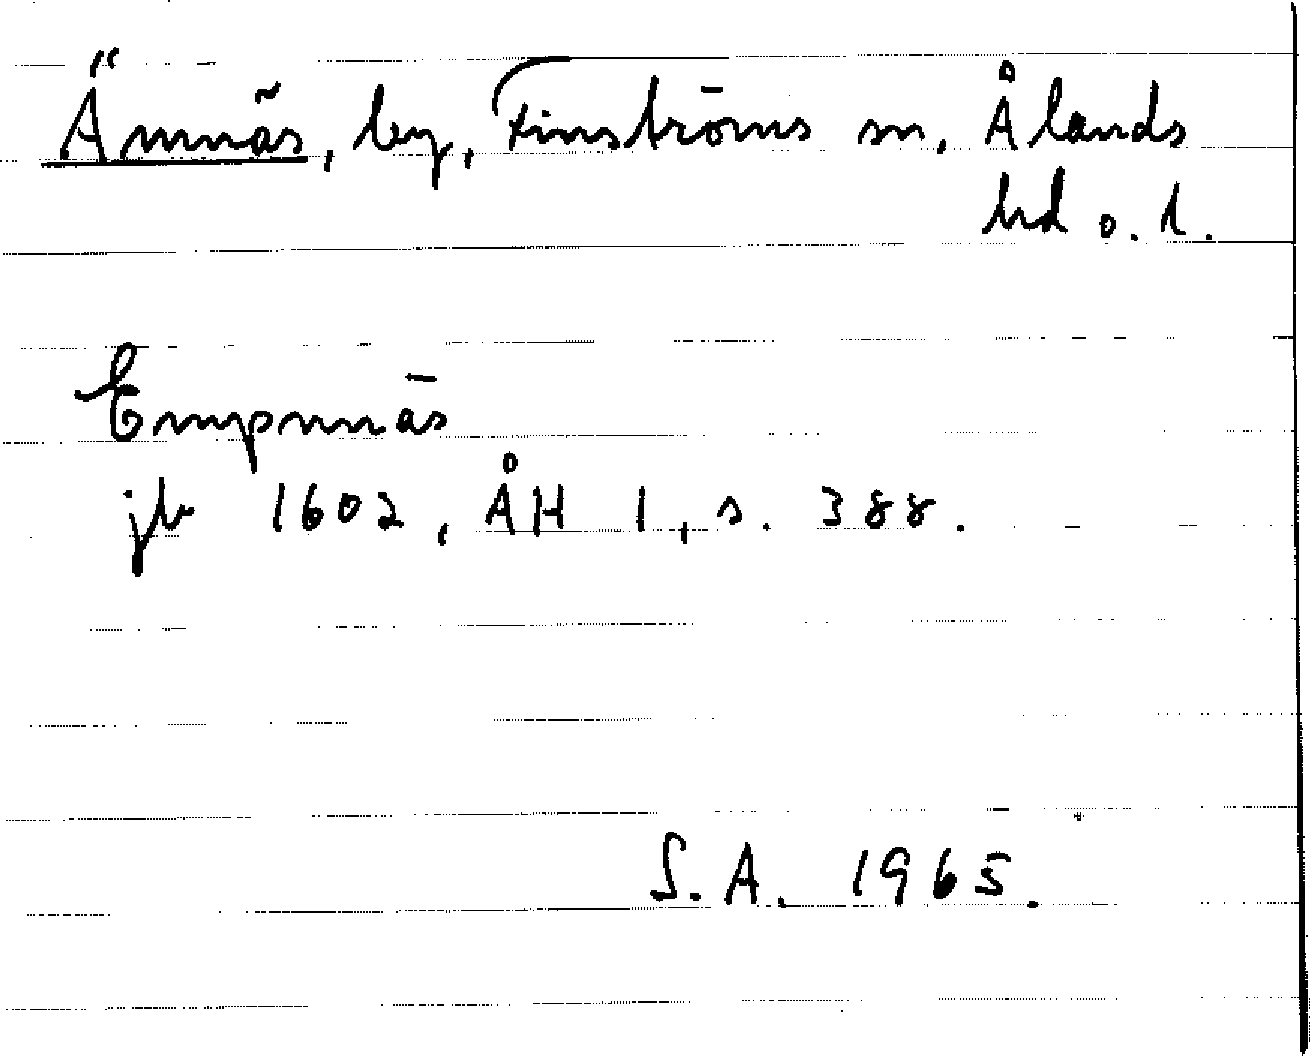 Ämnäs, by, Finströms sn, Ålands
hd o. l.
Empnnäs
jb 1602, ÅH 1, s. 388.
S.A. 1965.